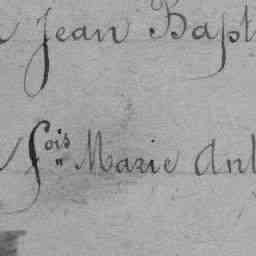 Jean Bapt
fois Marie Ant